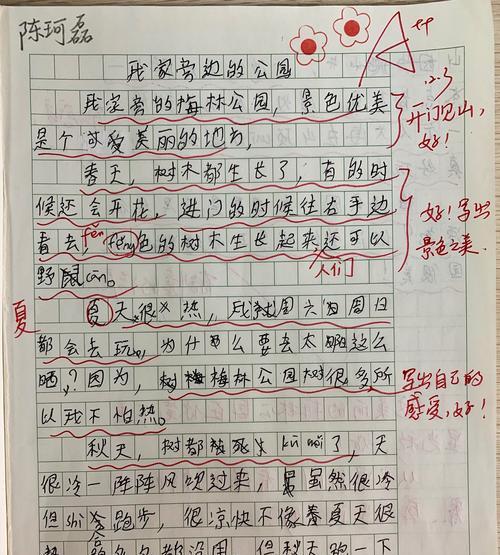 陈珂磊
A++
我家旁边的公园
12.3
我家旁的梅林公园,景色优美
开门见山,
是个可爱美丽的地方,
好!
春天,树木都生长了,有的时
候还会开花,进门的时候往右手边
好!写出
看去,fěn fěng色的树木生长起来还可以
景色之美.
人们
野餐cān。
夏
夏天很热,我周六和周日
都会去玩,为什么要去太阳这么
晒,?因为,树梅梅林公园树很多所
写出自己的
以我不怕热。
感受,好!
秋天,树都被死生kū 了,天
很冷一阵阵风吹过来,虽然很冷
但shì会跑步,很凉快不像夏天很
但秋天跑一下